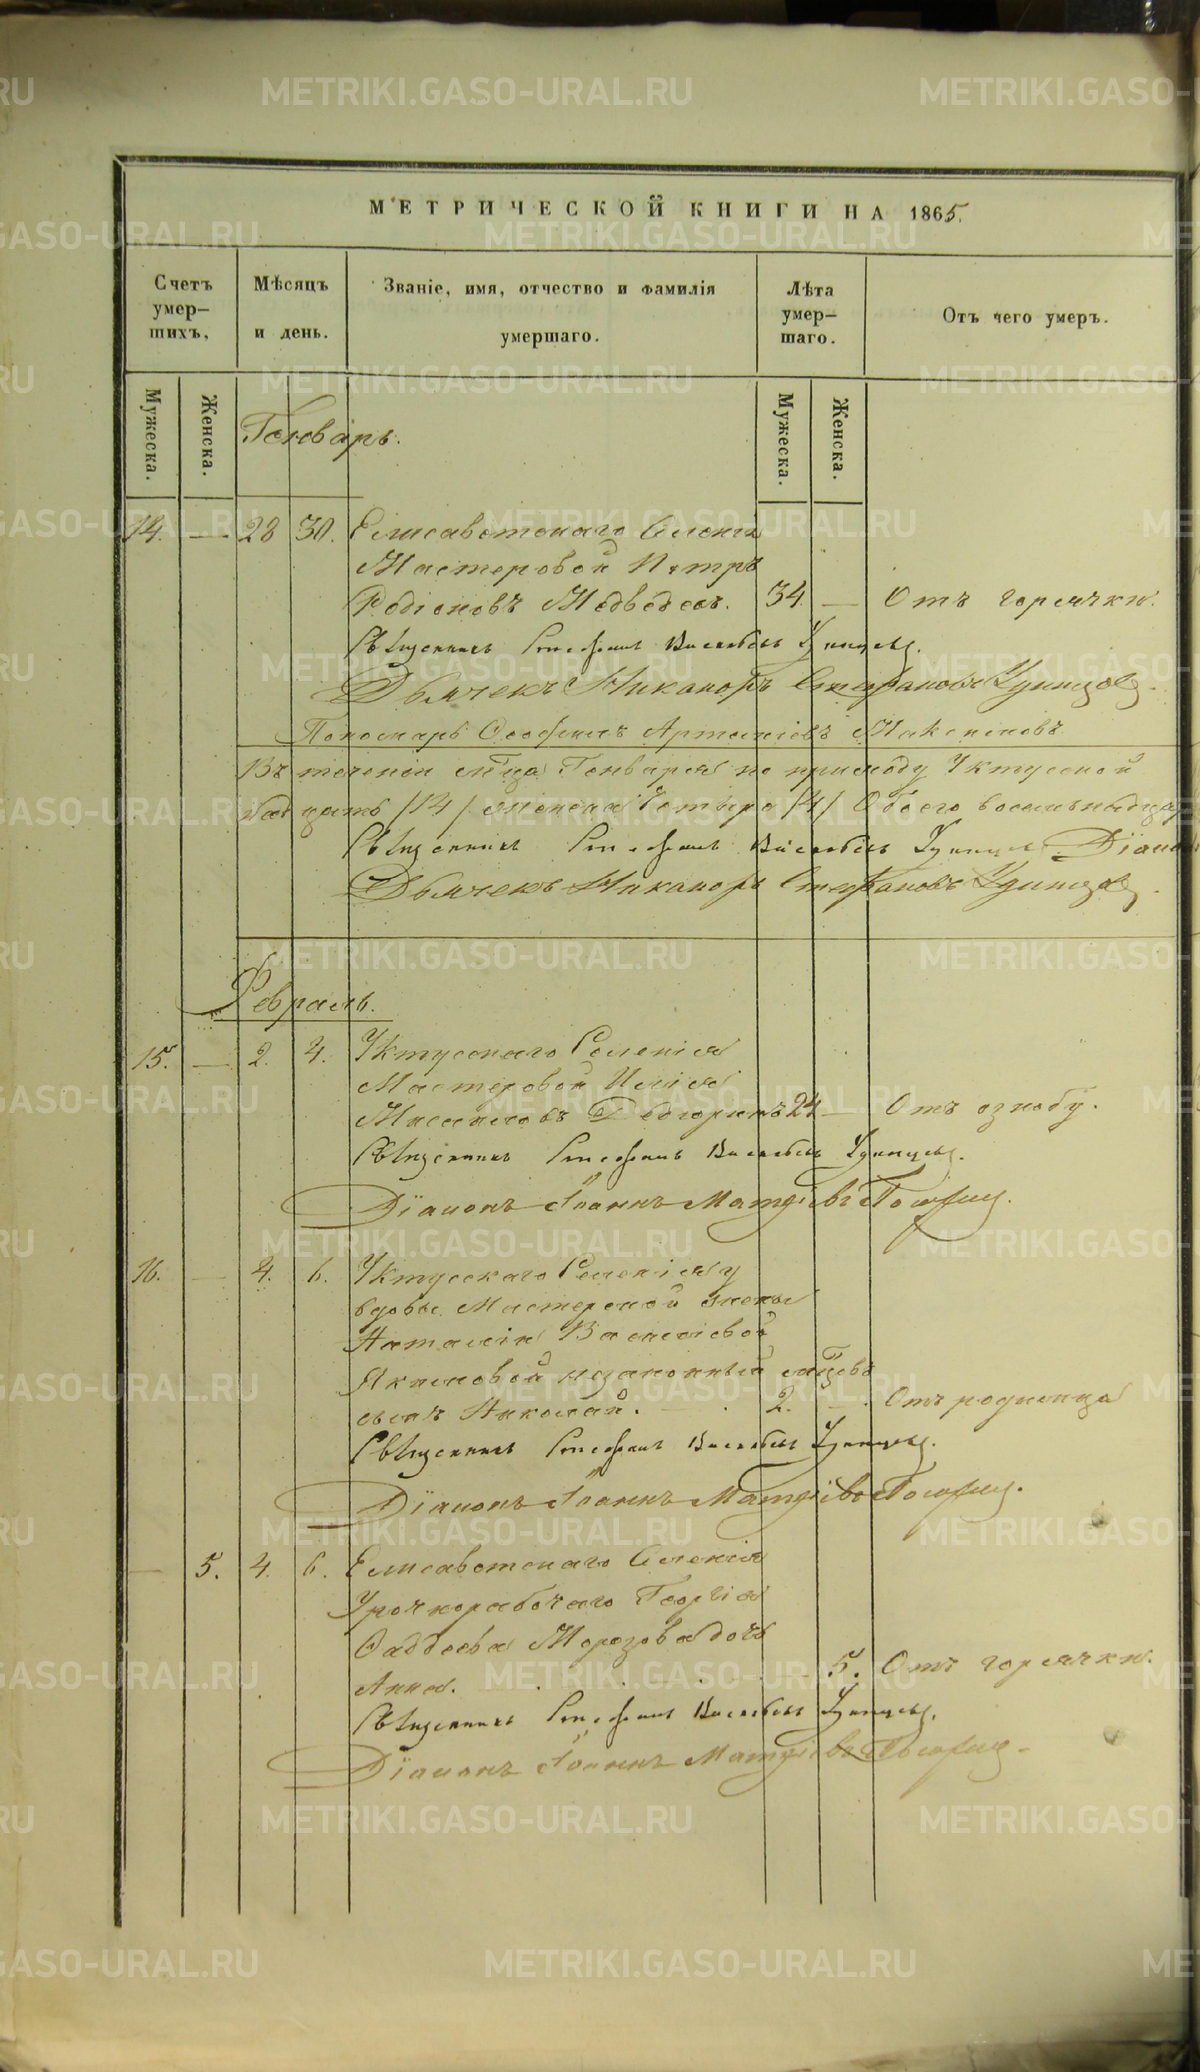 МЕТРИЧЕСКОЙ КНИГИ НА 1865.
Счетъ умер-шихъ.
Мѣсяцъ и день.
Званіе, имя, отчество и фамилія умершаго.
Лѣта умер-шаго.
Отъ чего умеръ.
Мужеска.
Женска.
Мужеска.
Женска.
Генварь.
14. — 28 30. Елисаветскаго Селенія
Мастеровой Петръ
Родіоновъ Медведевъ. 34 — Отъ горячки.
Священникъ Стефанъ Васильевъ Удинцевъ.
Дьячекъ Никаноръ Стефановъ Удинцевъ.
Пономарь Феофилъ Артеміевъ Максимовъ
Въ теченіи мѣсца Генваря по приходу Уктусской
надцать /14/ женска Четыре /4/ Обоего восемьнадца
Священникъ Стефанъ Васильевъ Удинцевъ Діако
Дьячекъ Никаноръ Стефановъ Удинцевъ.
Февраль.
15. — 2. 4. Уктусскаго Селенія
Мастеровой Илія
24 — Отъ ознобу.
Священникъ Стефанъ Васильевъ Удинцевъ.
Діаконъ Іоаннъ Матѳіевъ
16. — 4. 6. Уктусскаго Селенія у
вдовы Мастерской жены
Наталіи Васильевой
Якимовой незаконный
сынъ Николай. — 2. — Отъ родимца
Священникъ Стефанъ Васильевъ Удинцевъ.
Діаконъ Іоаннъ Матѳіевъ
— 5. 4. 6. Елисаветскаго Селенія
Урочнорабочаго Георгія
Фаддеева Морозова дочь
Анна. 5. Отъ горячки.
Священникъ Стефанъ Васильевъ Удинцевъ.
Діаконъ Іоаннъ Матѳіевъ
METRIKI.GASO-URAL.RU